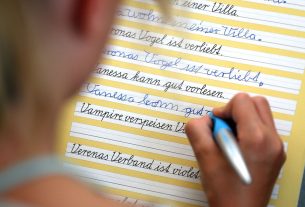 einer Villa.
wohnt in einer Villa.
Verenas Vogel ist verliebt.
Verenas Vogel ist verliebt.
Vanessa kann gut vorlesen.
Vanessa kann gut
Vampire verspeisen
Verenas Verband ist violett